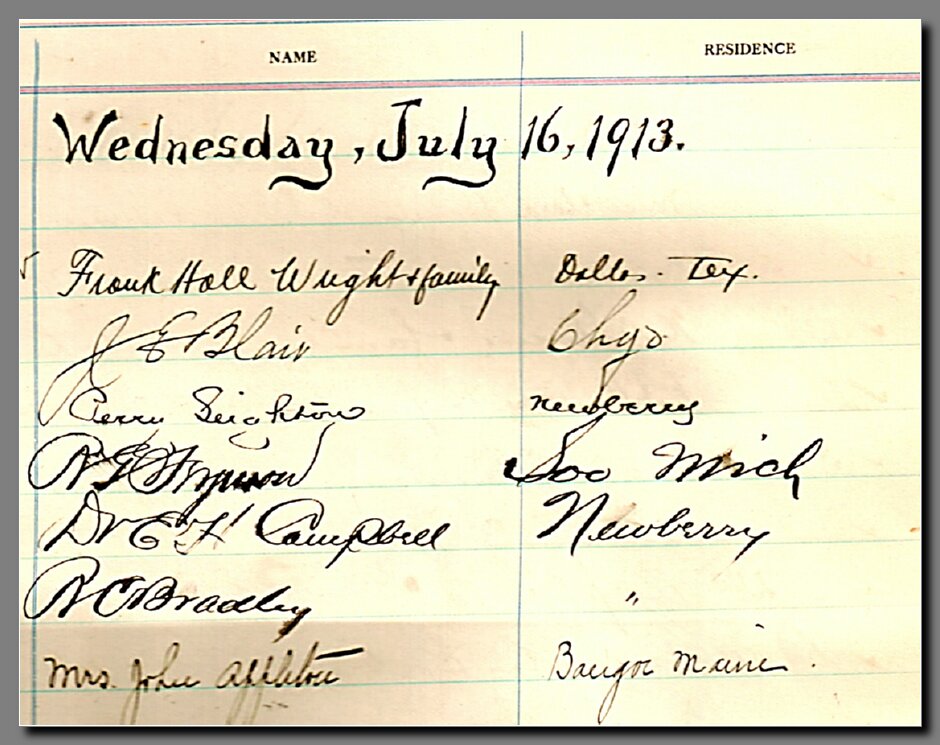 NAME RESIDENCE
Wednesday, July 16, 1913.
Frank Hall Wright & family Dallas. Tex.
J E Blair Chgo
Perry Leighton Newberry
Soo Mich
Dr E H Campbell Newberry
R C Bradley "
Mrs. John Appleton Bangor Maine.